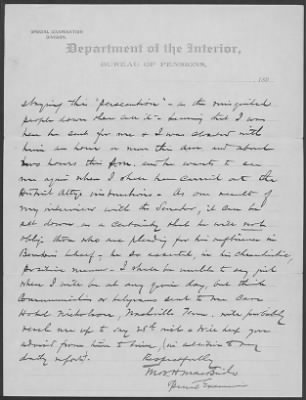 SPECIAL EXAMINATION
DIVISION.
Department of the Interior,
BUREAU OF PENSIONS,
189
staying this "persecution" - as the misguided
people down there call it - Learning that I was
here he sent for me & I was closeted with
him an hour or more this a.m. and about
two hours this p.m. and he wants to see
me again when I shall have carried out the
District Attys instructions - As one result of
my interview with the Senator, it can be
set down as a certainty that he will not
oblige those who are pleading for his influence in
behalf - he so asserted, in his characteristic,
positive manner - I shall be unable to say just
where I will be at any given day, but think
Communications or telegrams sent to me Care
Hotel Nicholson, Nashville Tenn. will probably
reach me up to say 28th inst & Will keep you
advised from time to time, (in addition to my
daily reports).
Respectfully
Special Examiner